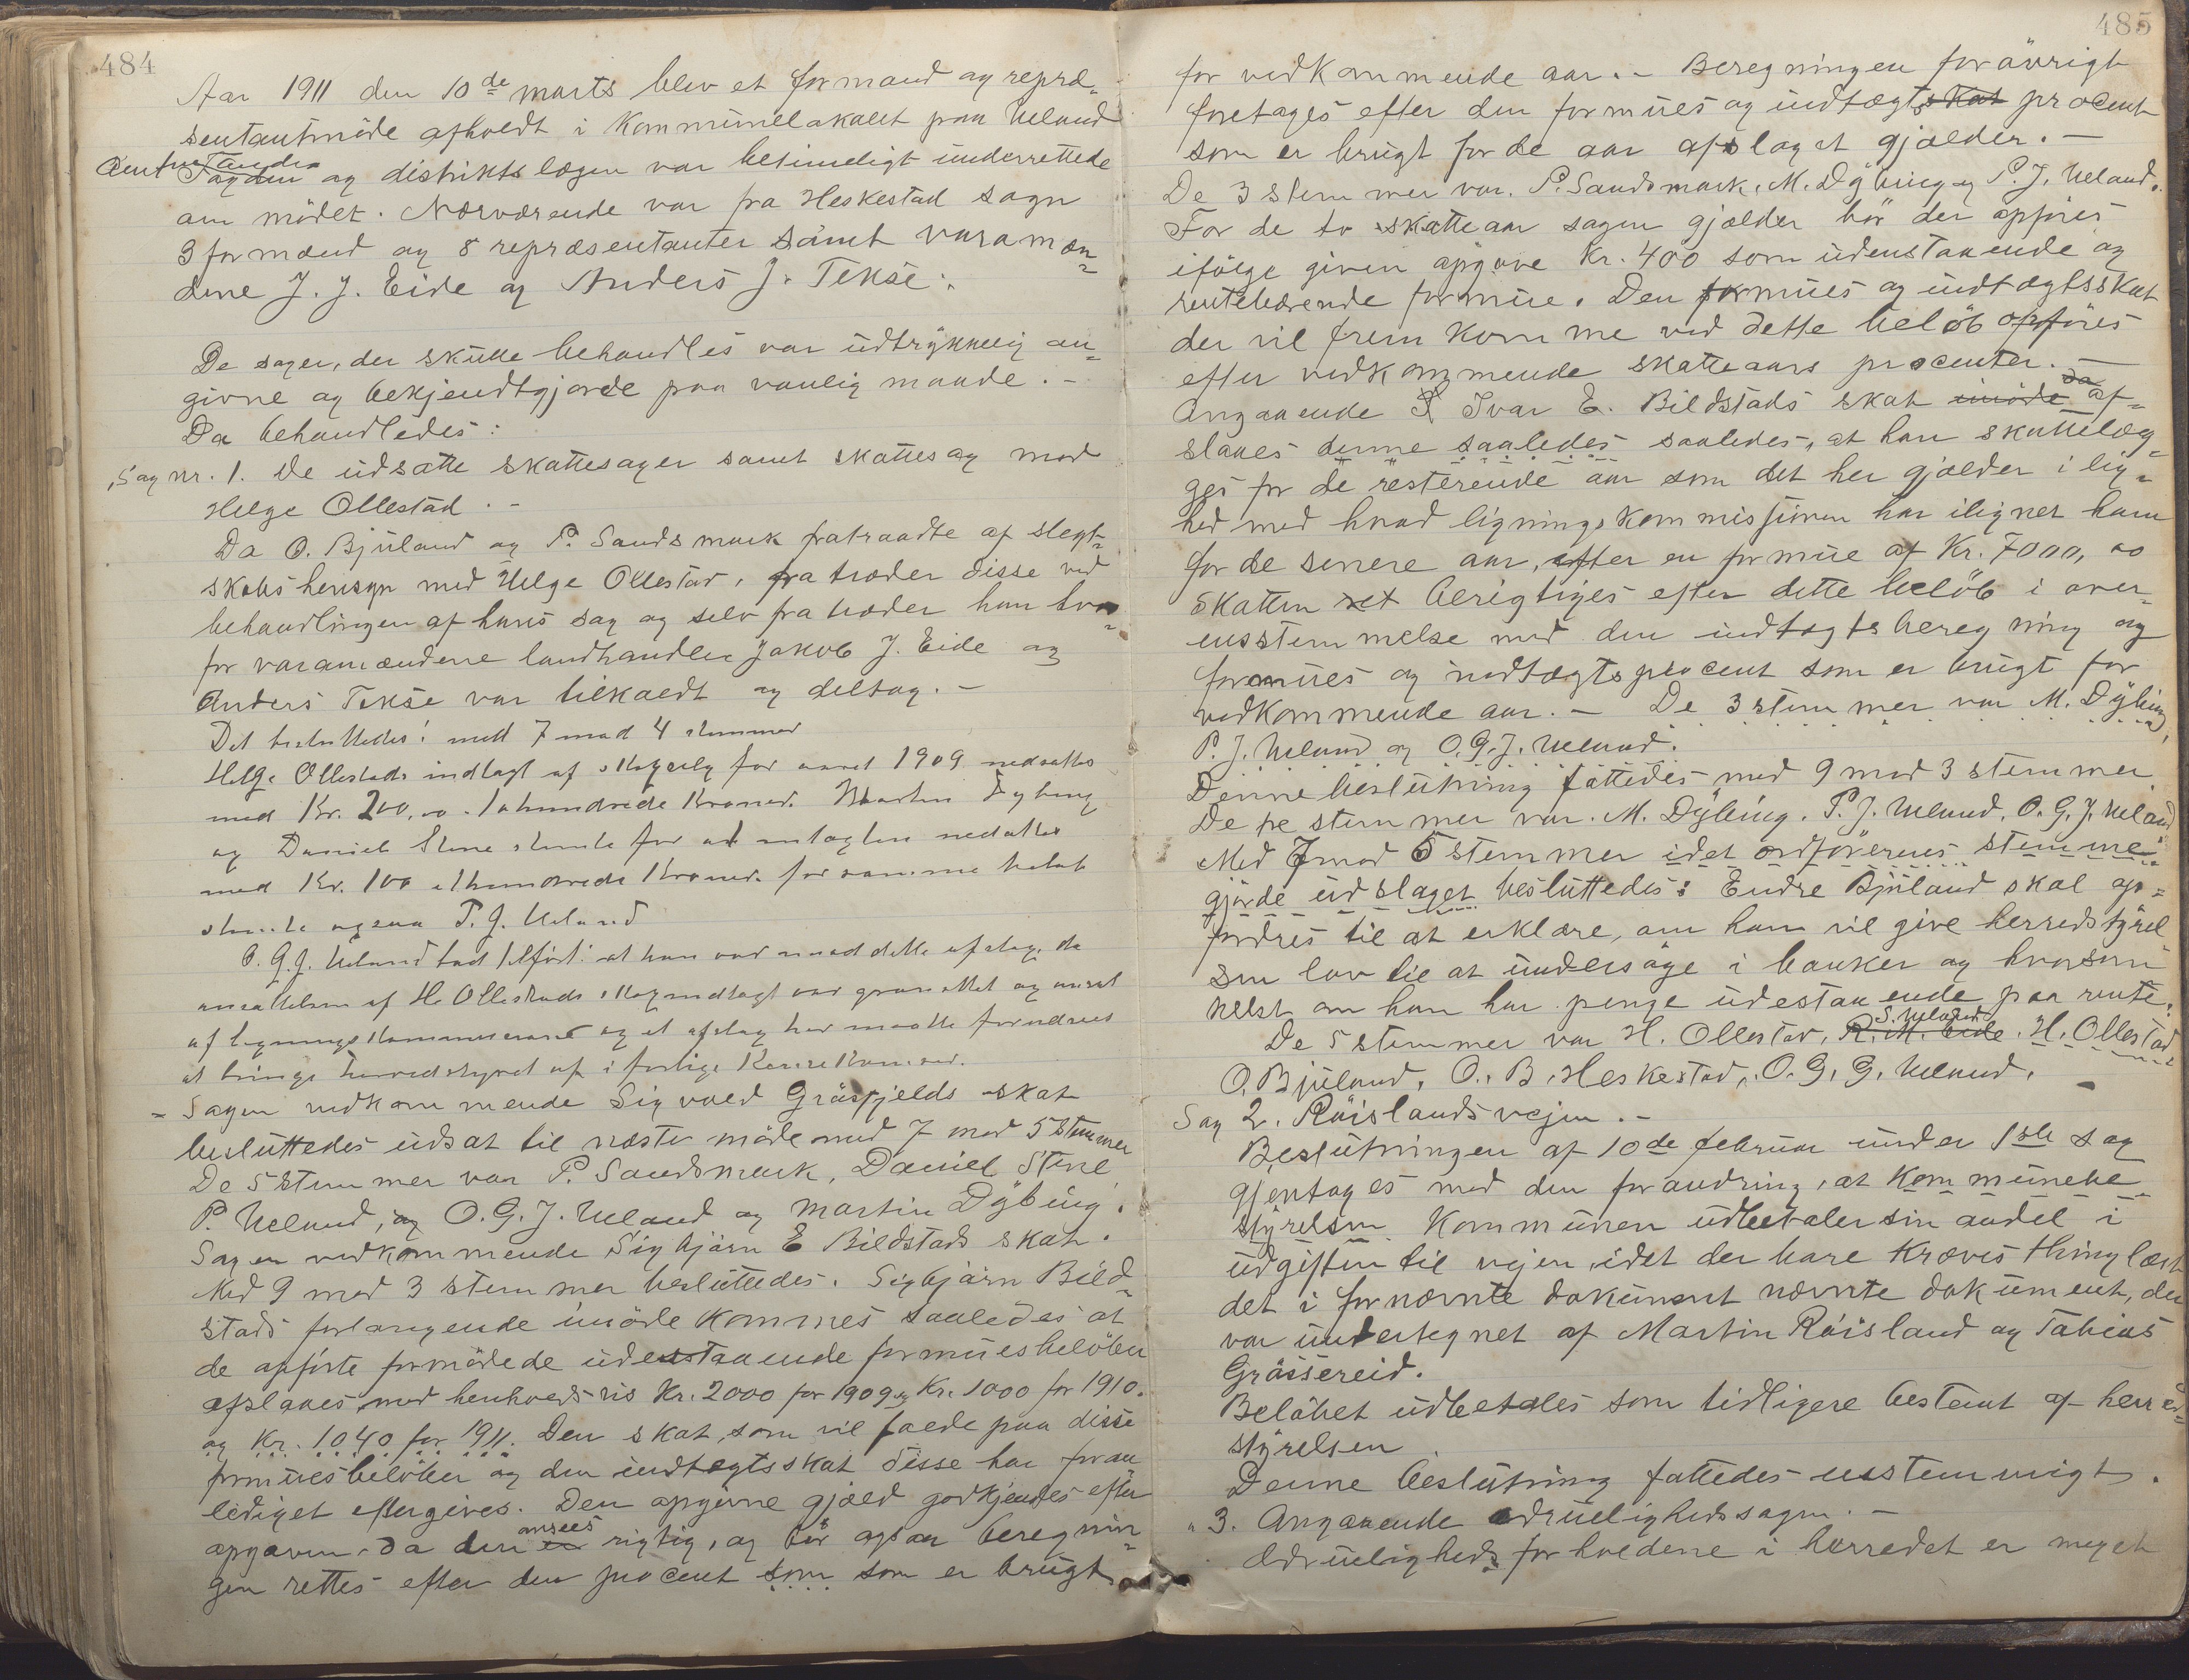 484
Aar 1911 den 10de marts blev et formand og repræ-
sentantmöde afholdt i Kommunelokalet paa Ueland
Amtmanden
Fogden og distriktslægen var betimeligt underrettede
om mödet. Nærværende var fra Heskestad sogn
3 formænd og 8 repræsentanter samt varamæn-
dene J. J. Eide og Anders J. Tekse.
De sager, der skulle behandles var udtrykkelig an-
givne og bekjendtgjorde paa vanlig maade. -
Da behandledes:
Sag nr. 1. De udsatte skattesager samt skattesag mod
Helge Ollestad. -
Da O. Bjuland og P. Sandsmark fratraadte af slegt-
skabshensyn med Helge Ollestad, fratræder disse ved
behandlingen af hans sag og selv fratræder han hvor-
for varamændene landhandler Jakob J. Eide og
Anders Tekse var tilkaldt og deltog. -
Det besluttedes: med 7 mod 4 stemmer
Helge Ollestads indtægt af skogsalg for aaret 1909 nedsættes
med Kr. 200,00 - tohundrede Kroner. Martin Dybing
og Daniel Stene stemte for at indtægten nedsættes
med Kr. 100 ethundrede Kroner. for samme beløb
stemte ogsaa P. J. Ueland
O. G. J. Ueland lod tilføri: at han var mod dette afslag, da
ansættelsen af H. Ollestads skogindtægt var ansat
af ligningskommissionen og et afslag her maatte
at bringe herredstyret op i
- Sagen vedkommende Sigvald Gräsfjelds skat
besluttedes udsat til næste möde med 7 mod 5 stemmer
De 5 stemmer var P. Sandsmark, Daniel Stene
P. Ueland, og O. G. J. Ueland og Martin Dybing.
Sagen vedkommende Sigbjörn E Bildstads skat.
Med 9 mod 3 stemmer besluttedes. Sigbjörn Bild-
stads forlangende imödekommes saaledes at
de opförte formodede udestaaende formuesbelöber
afslaaes med henholdsvis Kr. 2000 for 1909 og Kr. 1000 for 1910.
og Kr. 1040 for 1911. Den skat, som vil falde paa disse
formuesbelöber og den indtægtsskat disse har foran
lediget eftergives. Den opgivne gjæld godkjendes efter
ansees
opgaven da den er rigtig, og bör ogsaa beregnin-
gen rettes efter den procent som som er brugt
485
for vedkommende aar. - Beregningen forövrigt
foretages efter den formues og indtægtsskat procent
som er brugt for de aar afslaget gjælder. -
De 3 stemmer var. P. Sandsmark, M. Dybing og P. J. Ueland.
For de to skatteaar sagen gjælder bör der opföres
ifölge given opgave Kr. 400 som udenstaaende og
rentebærende formue. Den formues og indtægtsskat
der vil fremkomme ved dette belöb opföres
efter vedkommende skatteaars procenter. -
da
Angaaende Ivar E. Bildstads skat imöde af-
slaaes denne saaledes saaledes, at han skattelæg-
ges for de resterende aar som det her gjælder i lig-
hed med hvad ligningskommissionen har ilignet ham
for de senere aar, efter en formue af Kr. 7000,00
Skatten ret berigtiges efter dette belöb i over-
ensstemmelse med den indtægtsberegning og
formues og indtægtsprocent som er brugt for
vedkommende aar. - De 3 stemmer var M. Dybing,
P. J. Ueland og O. G. J. Ueland.
Denne beslutning fattedes med 9 mod 3 stemmer
De tre stemmer var. M. Dybing. P. J. Ueland, O. G. J. Ueland
Med 7 mod 5 stemmer idet ordförerens stemme
gjorde udslaget besluttedes: Endre Bjuland skal op-
fordres til at erklære, om han vil give herredstyrel-
sen lov til at undersöge i banker og hvorsom
helst om han har penge udestaaende paa rente.
S. Ueland
De 5 stemmer var H. Ollestad, R. M. Eide. H. Ollestad
O. Bjuland, O. B. Heskestad, O. G. G. Ueland. -
Sag 2. Röislandsvejen. -
Beslutningen af 10de februar under 1ste sag
gjentages med den forandring, at kommune
styrelsen Kommunen udbetaler sin andel i
udgiften til vejen, idet der bare kræves thinglæst
det i fornævnte dokument nævnte dokument, der
var undertegnet af Martin Röisland og Tobias
Grössereid.
Belöbet udbetales som tidligere bestemt af herreds-
styrelsen
Denne beslutning fattedes enstemmigt.
" 3. Angaaende ædruelighedssagen. -
Ædruelighedsforholdene i herredet er meget